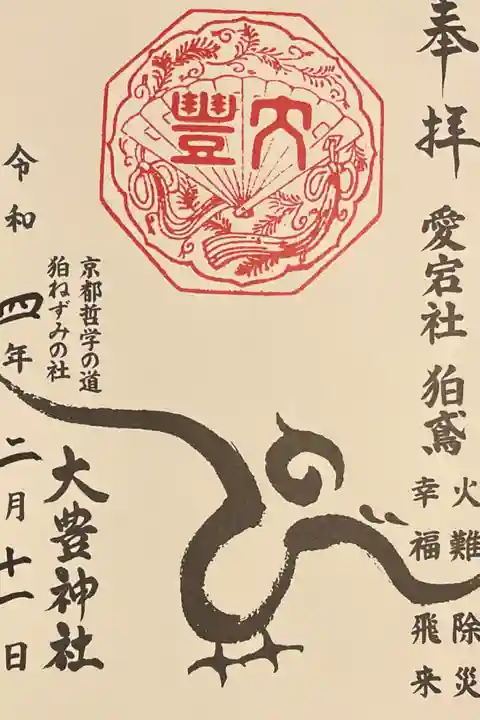 奉拝
愛宕社 狛鳶
火難除災
幸福飛来
大豊
京都哲学の道
狛ねずみの社
大豊神社
令和四年二月十一日